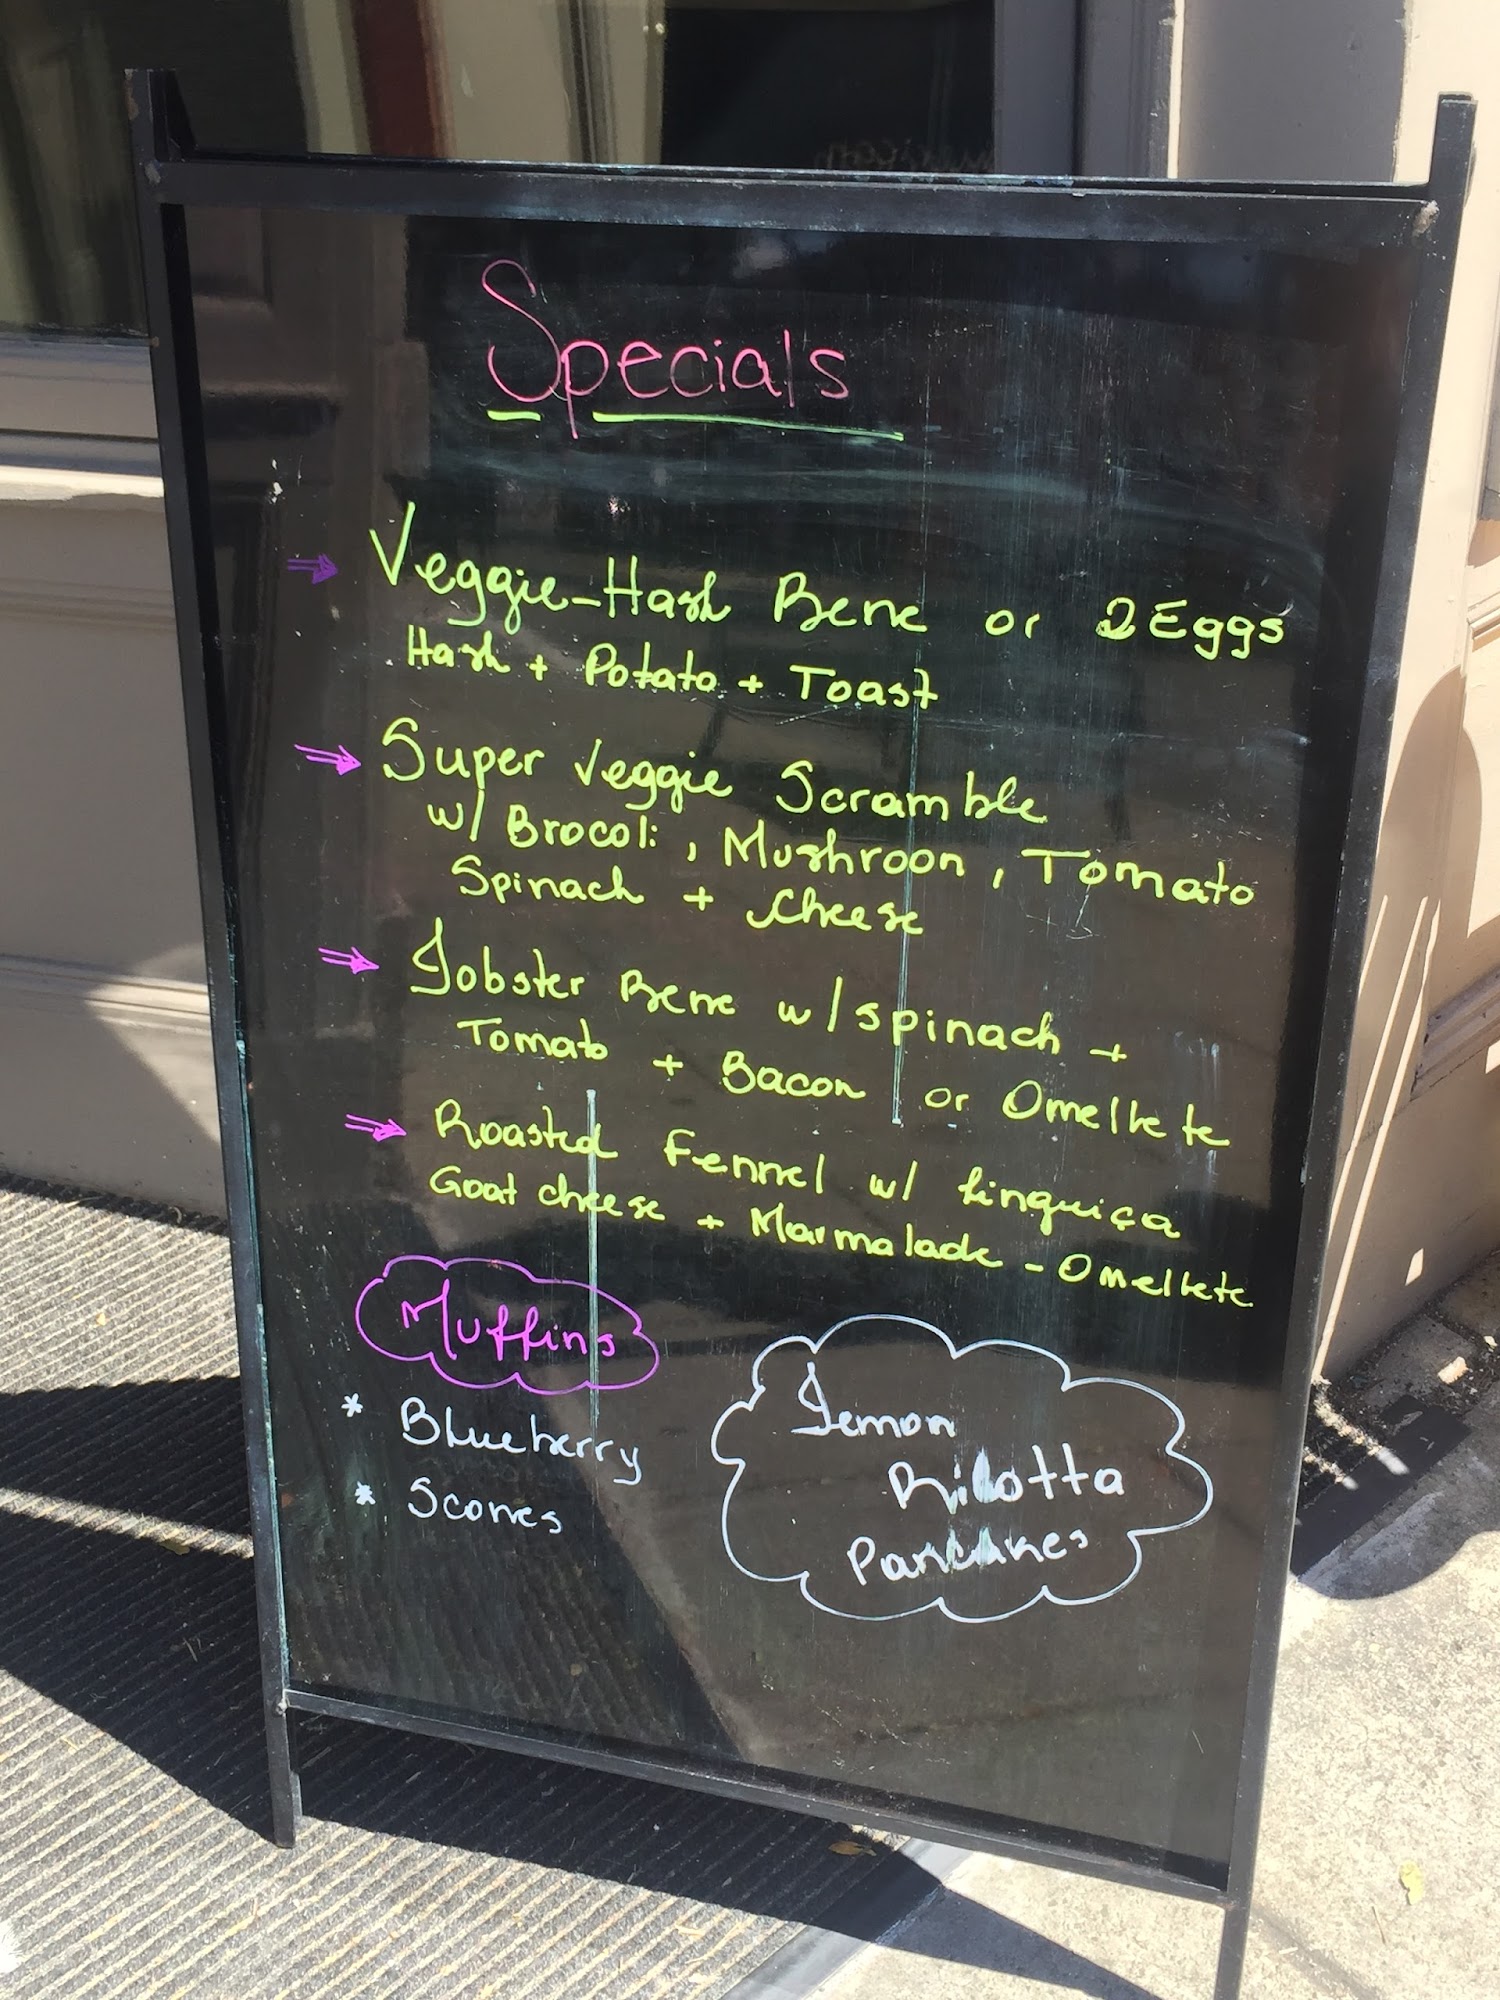 Specials
Veggie-Hash Bene or 2 Eggs
Hash + Potato + Toast
Super Veggie Scramble
w/ Brocoli, Mushroon, Tomato
Spinach + Cheese
Lobster Bene w/ spinach +
Tomato + Bacon or Omelkete
Roasted Fennel w/ Linguiça
Goat cheese + Marmalade - Omelkete
Muffins
* Blueberry
* Scones
Lemon
Ricotta
Pancakes